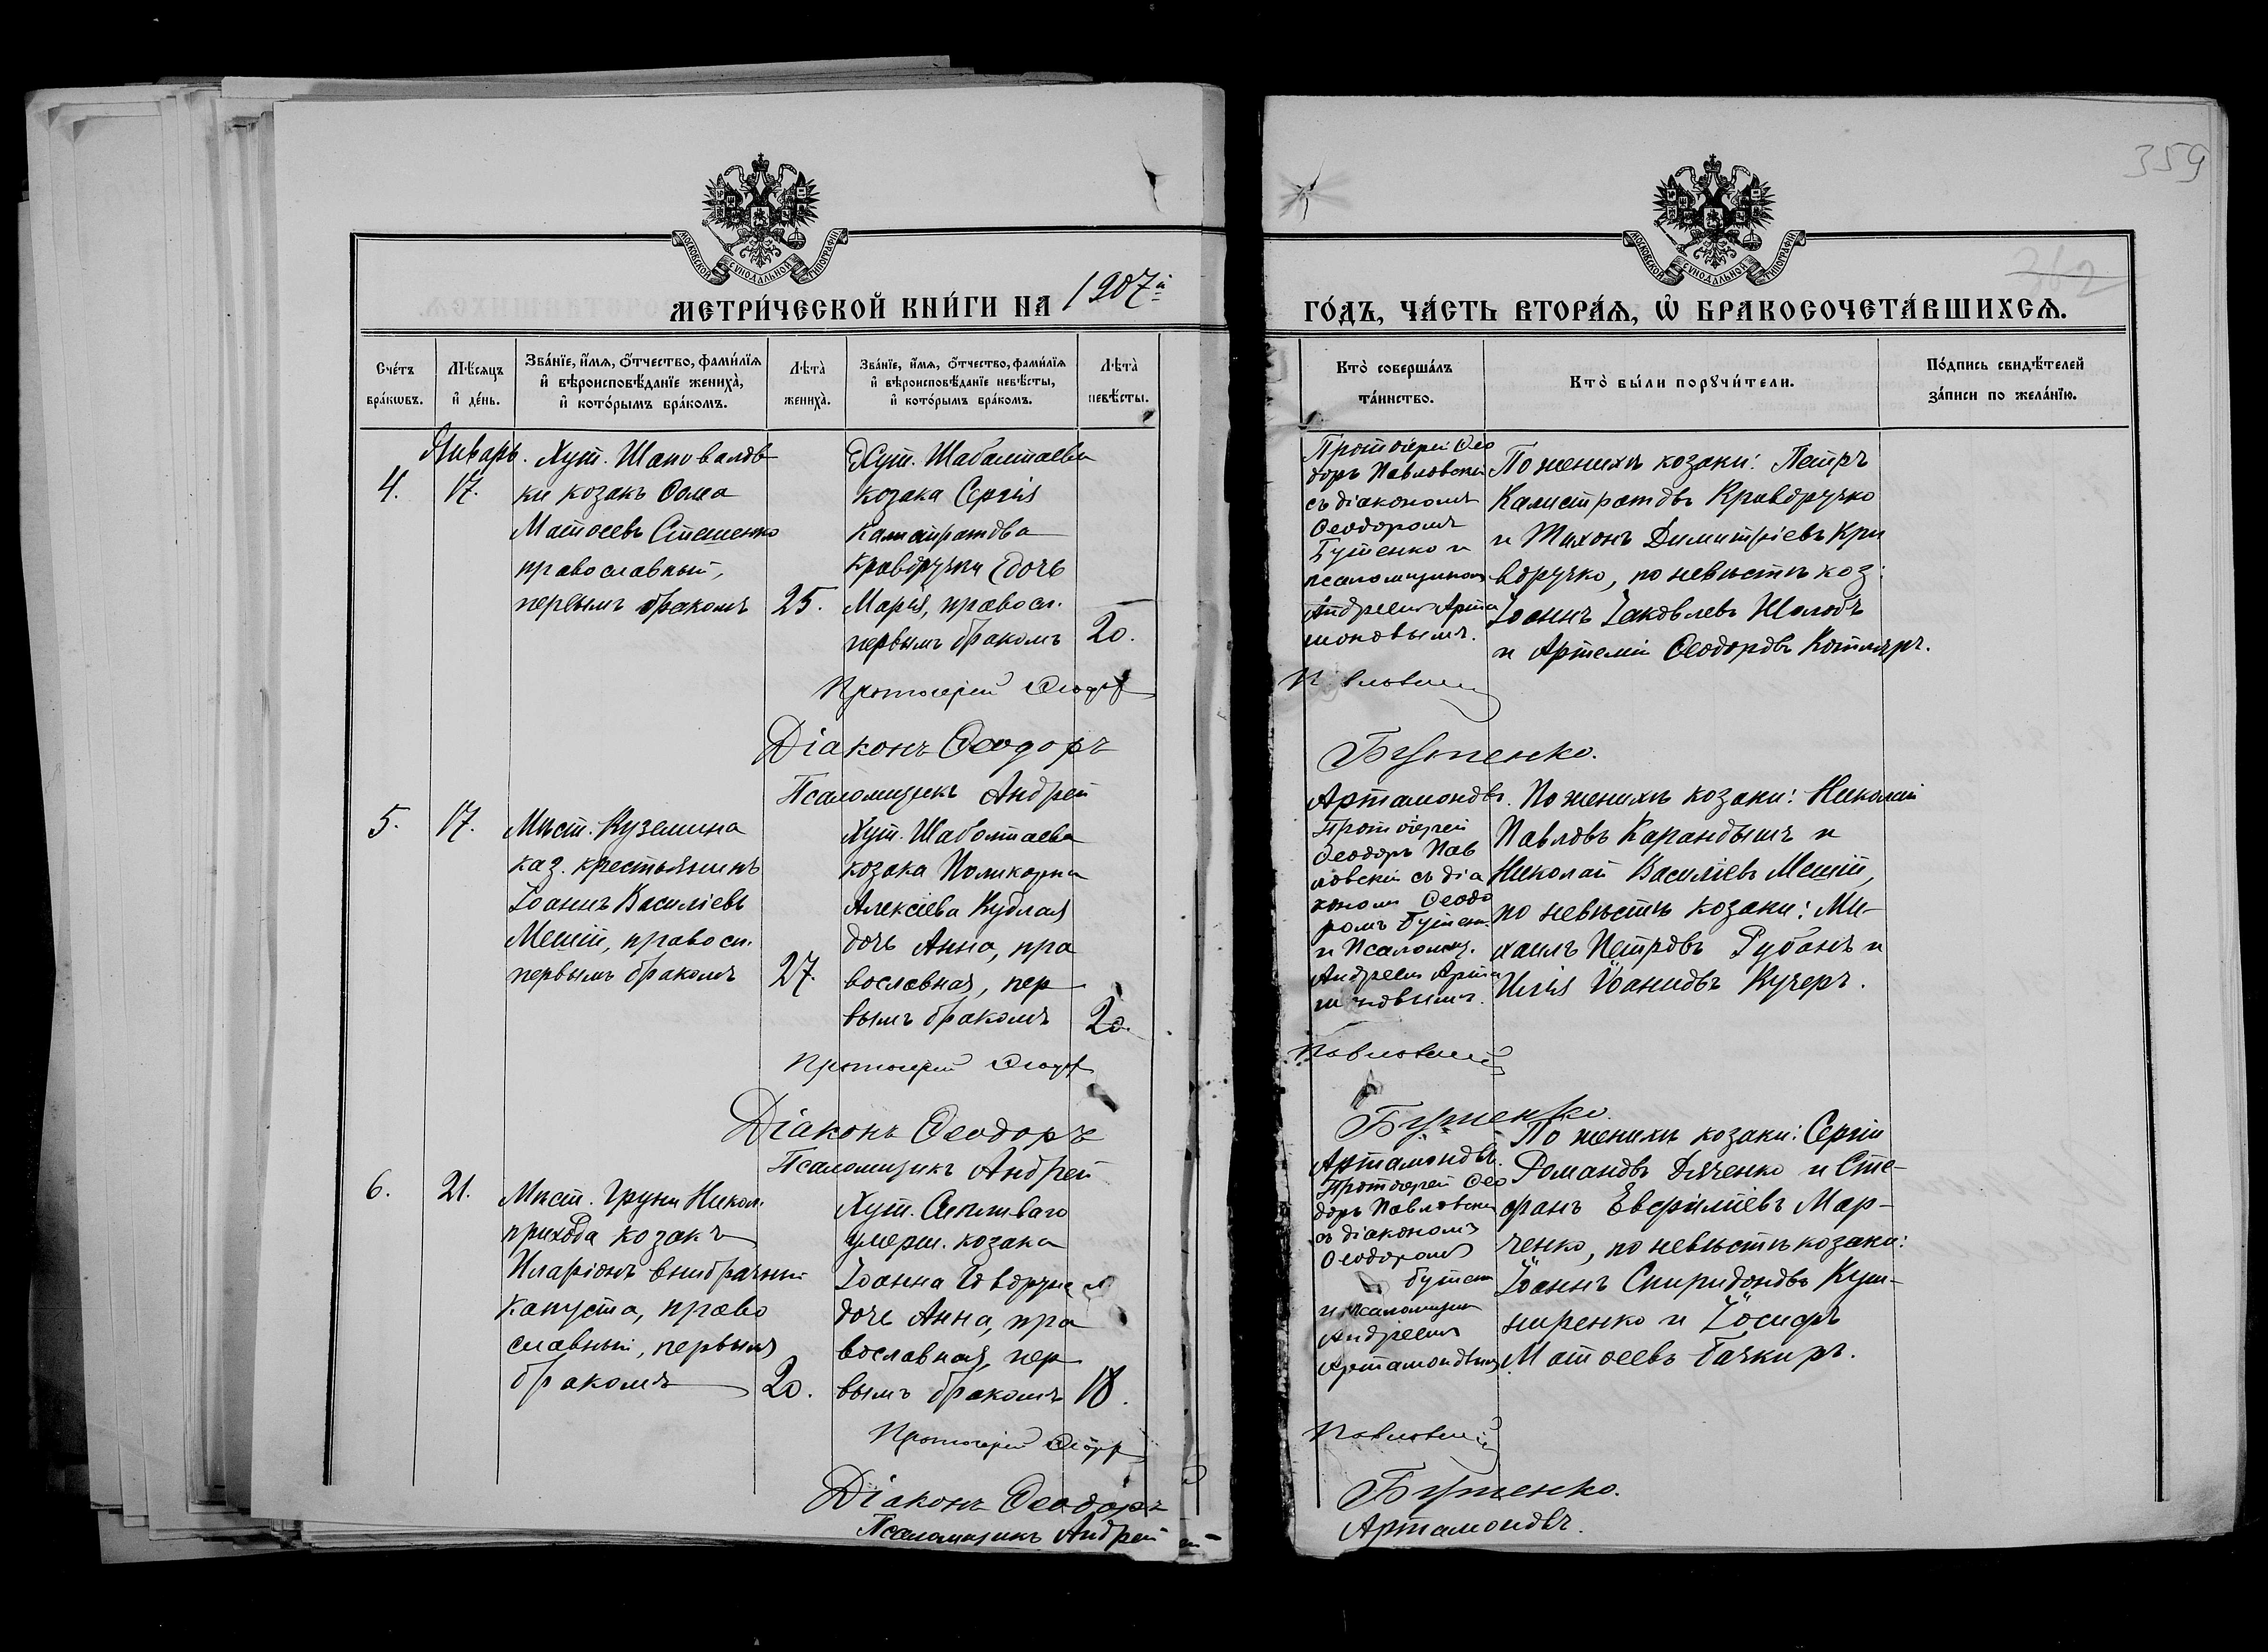 359
362
МОСКОВСКОЙ СѴНОДАЛЬНОЙ ТИПОГРАФІИ
МОСКОВСКОЙ СѴНОДАЛЬНОЙ ТИПОГРАФІИ
МЕТРИ́ЧЕСКОЙ КНИ́ГИ НА 1907й
ГО́ДЪ, ЧА́СТЬ ВТОРА́Ѧ, Ѡ҆ БРАКОСОЧЕТА́ВШИХСѦ.
Сче́тъ
бра́кѡвъ.
Мѣ́сяцъ
и҆ де́нь.
Зва́нїе, и҆́мѧ, ѻ҆́тчество, фами́лїѧ
и҆ вѣроисповѣ́данїе жениха̀,
и҆ кото́рымъ бра́комъ.
Лѣ́та̀
жениха̀.
Зва́нїе, и҆́мѧ, ѻ҆́тчество, фами́лїѧ
и҆ вѣроисповѣ́данїе невѣ́сты,
и҆ кото́рымъ бра́комъ.
Лѣ́та̀
невѣ́сты.
Кто̀ соверша́лъ
та́инство.
Кто̀ бы́ли порꙋчи́тели.
По́дпись свидѣ́телей
за́писи по жела́нїю.
Январь.
4.
17.
Хут. Шаповалов
ки козакъ Ѳома
Матѳеевъ Стешенко
православный,
первымъ бракомъ
25.
Хут. Шабалтаева
козака Сергія
Калистратова
Криворучки дочь
Марія, правосл.
первымъ бракомъ
20.
Протоіерей Ѳео
доръ Павловскій
съ діакономъ
Ѳеодоромъ
Бутенко и
псаломщикомъ
Андреемъ Арта
моновымъ.
По женихѣ козаки: Петръ
Калистратовъ Криворучко
и Тихонъ Димитріевъ Кри
воручко, по невѣстѣ коз:
Іоаннъ Іаковлевъ Шолобъ
и Артемій Ѳеодоровъ Котляръ.
Протоіерей Ѳеодоръ
Павловскій
Діаконъ Ѳеодоръ
Бутенко.
Псаломщикъ Андрей
Артамоновъ.
5.
17.
Мѣст. Куземина
каз. крестьянинъ
Іоаннъ Василіевъ
Мешій, правосл.
первымъ бракомъ
27.
Хут. Шаболтаева
козака Поликарпа
Алексіева Кублая
дочь Анна, пра
вославная, пер
вымъ бракомъ
20.
Протоіерей
Ѳеодоръ Пав
ловскій съ діа
кономъ Ѳеодо
ромъ Бутен.
и Псаломщ.
Андреемъ Арта
моновымъ.
По женихѣ козаки: Николай
Павловъ Карандышъ и
Николай Василіевъ Мешій,
по невѣстѣ козаки: Ми-
хаилъ Петровъ Рубанъ и
Илія Іоанновъ Кучеръ.
Протоіерей Ѳеодоръ
Павловскій
Діаконъ Ѳеодоръ
Бутенко.
Псаломщикъ Андрей
Артамоновъ.
6.
21.
Мѣст. Груни Никол.
прихода козакъ
Иларіонъ внибрачный
Капуста, право
славный, первымъ
бракомъ
20.
Хут.
умерш. козака
Іоанна
дочь Анна, пра
вославная, пер
вымъ бракомъ
18.
Протоіерей Ѳео
доръ Павловскій
съ діакономъ
Ѳеодоромъ
Бутен
и псаломщик
Андреемъ
Артамоновымъ
По женихѣ козаки: Сергій
Романовъ Дяченко и Сте-
фанъ Мар-
ченко, по невѣстѣ козаки:
Іоаннъ Спиридоновъ Куш-
ниренко и Іосифъ
Матѳеевъ Бачкиръ.
Протоіерей Ѳеодоръ
Павловскій
Діаконъ Ѳеодоръ
Бутенко.
Псаломщикъ Андрей
Артамоновъ.